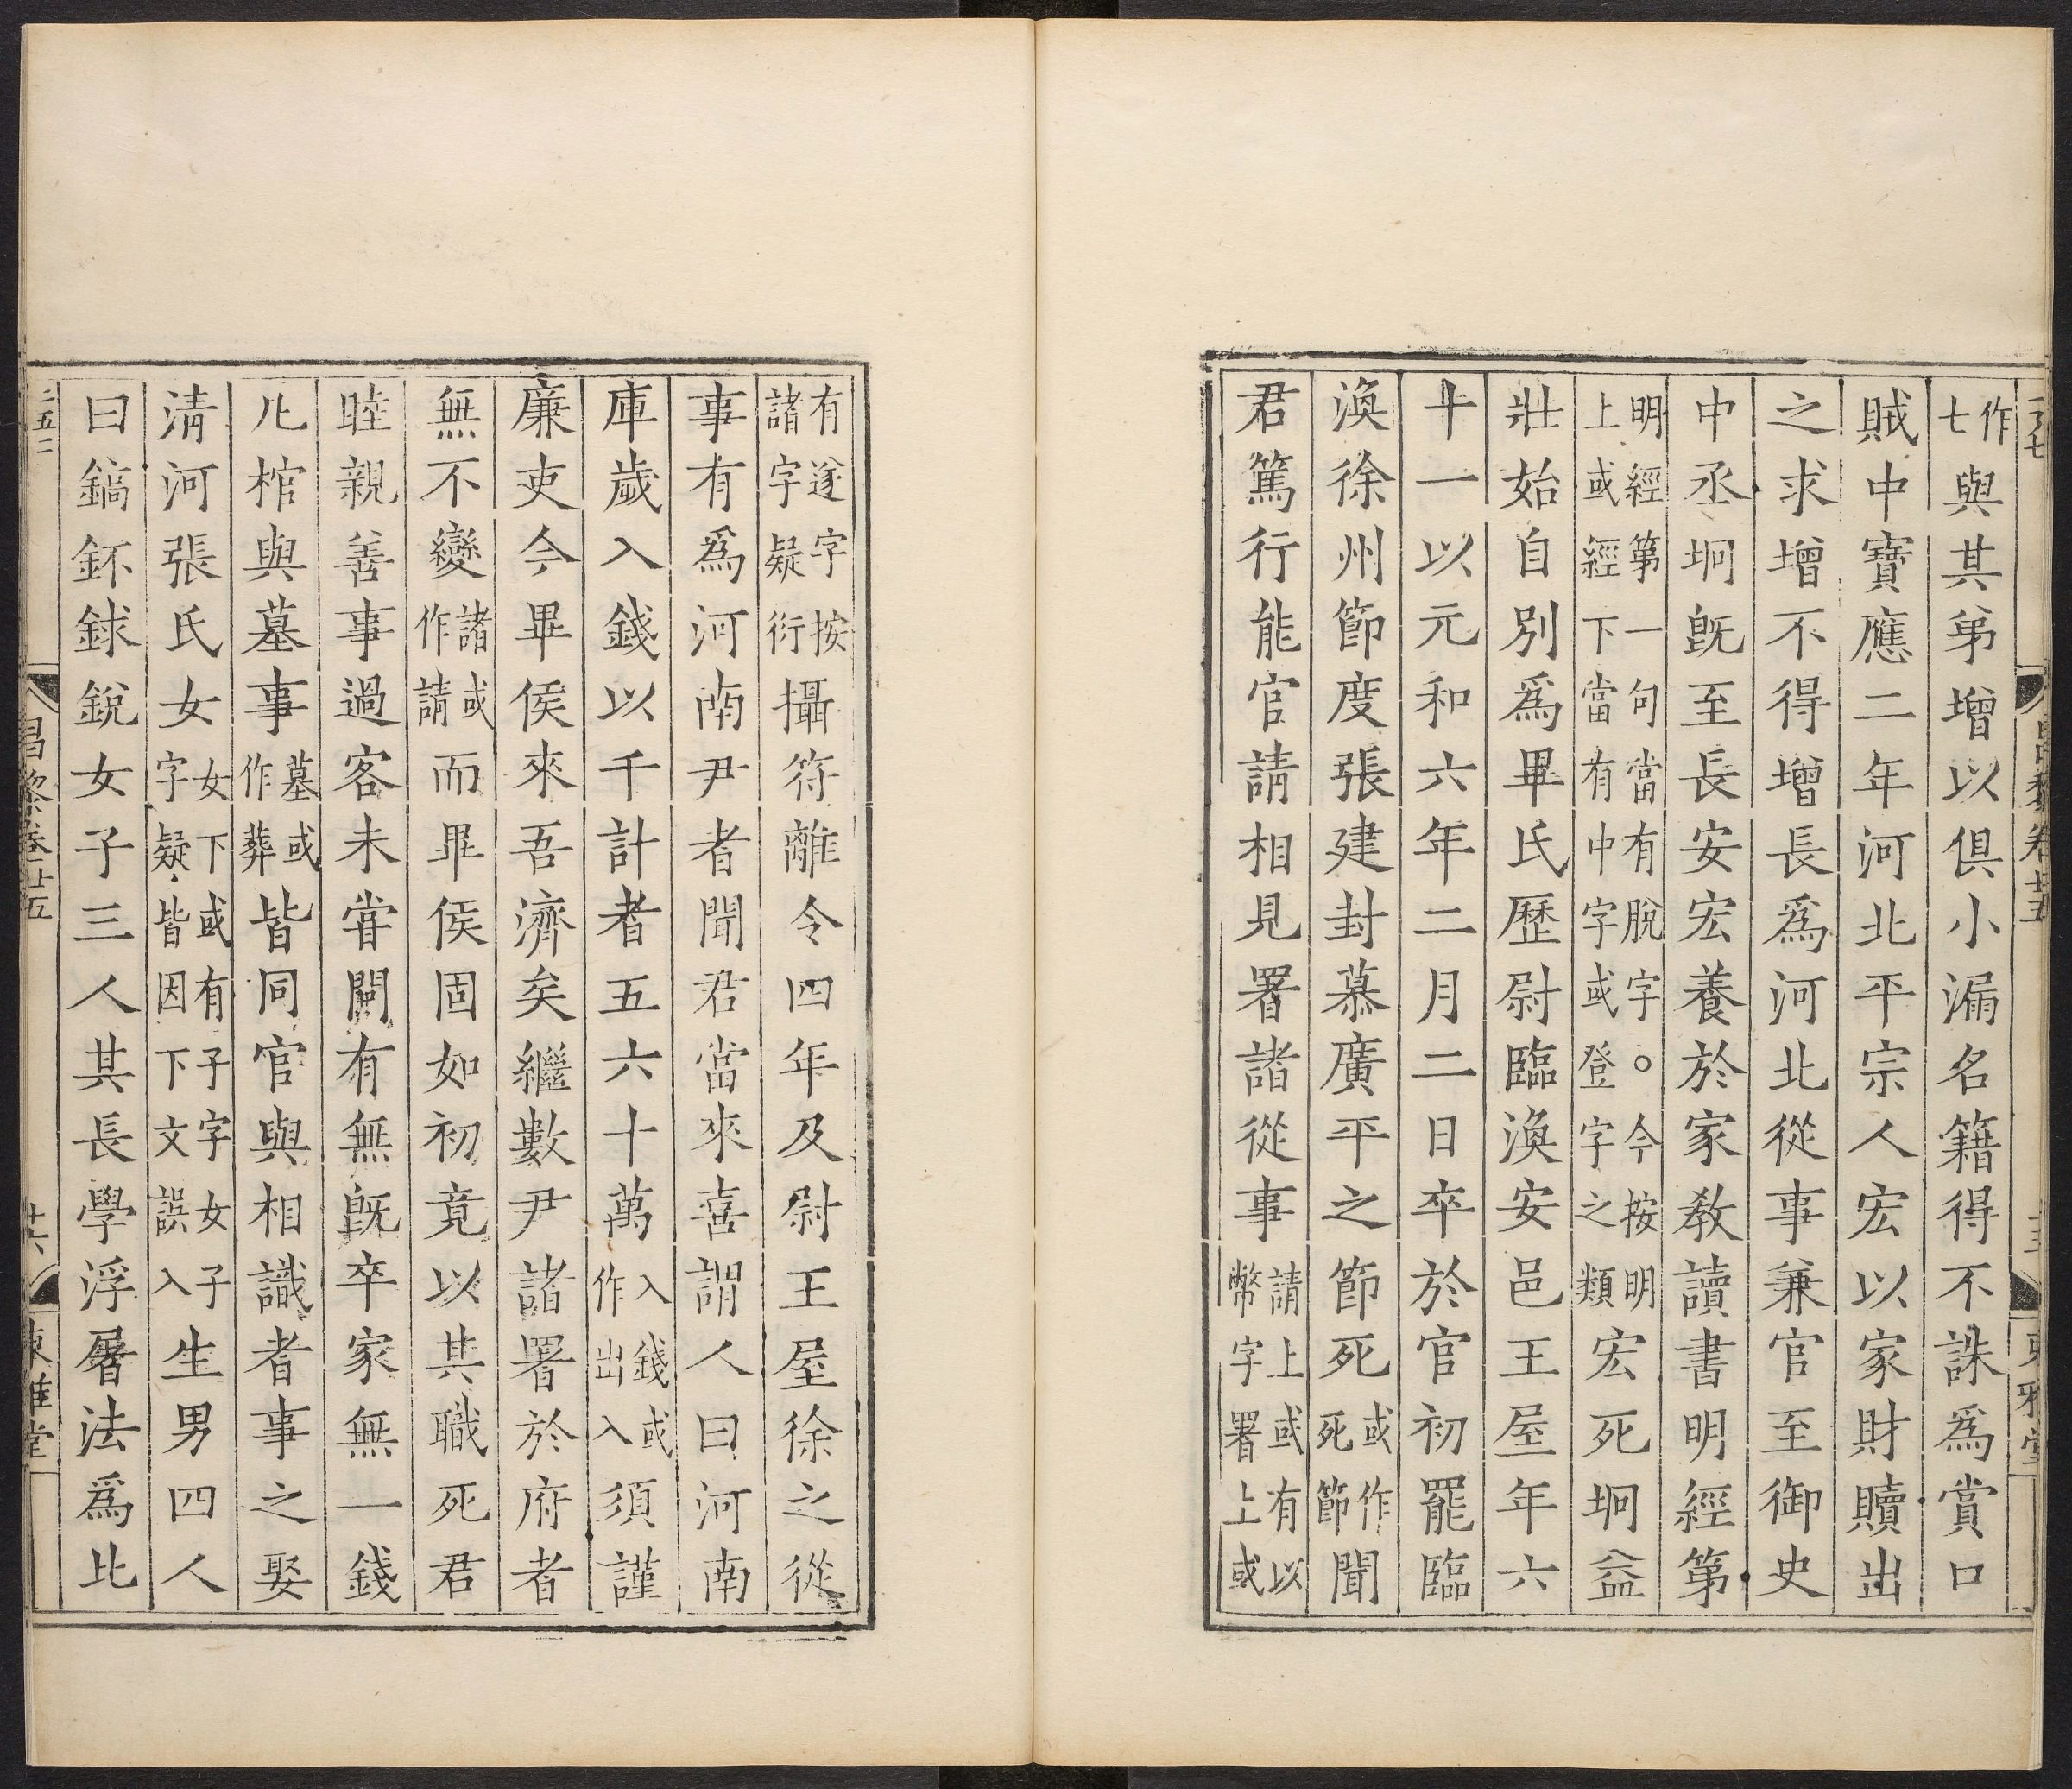 作七與其弟增以俱小漏名籍得不誅爲賞口
賊中寶應二年河北平宗人宏以家財贖出
之求增不得增長爲河北從事兼官至御史
中丞坰旣至長安宏養於家敎讀書明經第
明經第一句當有脫字○今按明上或經下當有中字或登字之類宏死坰益
壯始自別爲畢氏歷尉臨渙安邑王屋年六
十一以元和六年二月二日卒於官初罷臨
渙徐州節度張建封慕廣平之節死或作死節聞
君篤行能官請相見署諸從事請上或有以幣字署上或
有遂字按諸字疑衍攝符離令四年及尉王屋徐之從
事有爲河南尹者聞君當來喜謂人曰河南
庫歲入錢以千計者五六十萬入錢或作出入須謹
廉吏今畢侯來吾濟矣繼數尹諸署於府者
無不變諸或作請而畢侯固如初竟以其職死君
睦親善事過客未甞問有無旣卒家無一錢
凡棺與墓事墓或作葬皆同官與相識者事之娶
淸河張氏女女下或有子字女子字疑皆因下文誤入生男四人
曰鎬鉟銶銳女子三人其長學浮屠法爲比
昌黎卷廿五
東雅堂
昌黎卷廿五
東雅堂